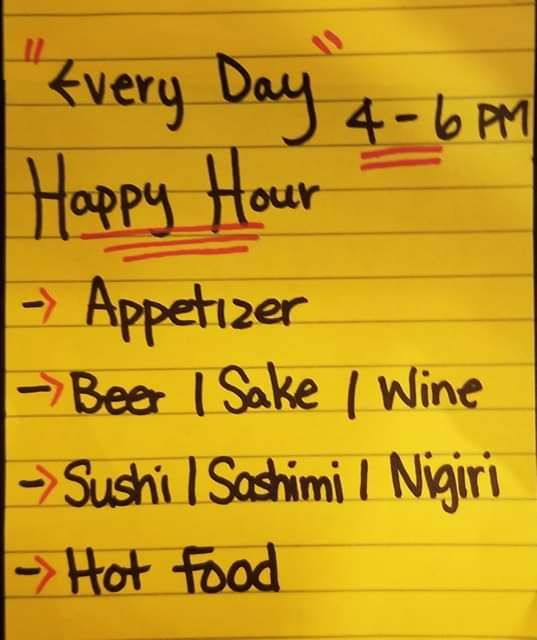 "Every Day"
4 - 6 PM
Happy Hour
→ Appetizer
→ Beer | Sake | Wine
→ Sushi | Sashimi | Nigiri
→ Hot Food